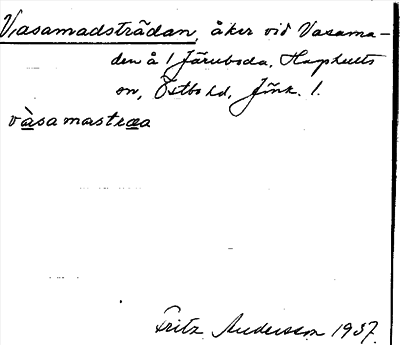 Vasamadsträdan, åker vid Vasama-
den å 1 Järuboda, Haghults
sn, Östbo hd, Jönk. l.
vàsamastræa
Fritz Andersson 1937.